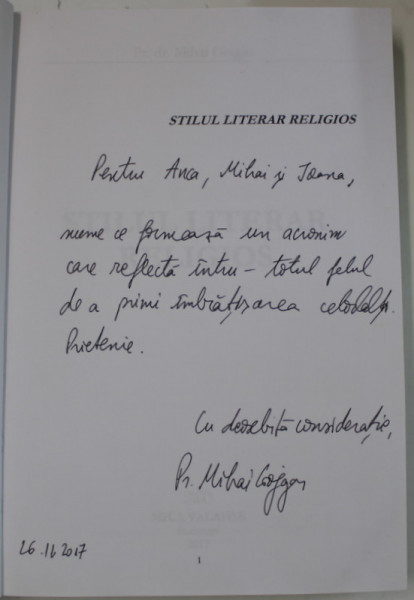 STILUL LITERAR RELIGIOS
Pentru Anca, Mihai și Ioana,
nume ce formează un acronim
care reflectă întru-totul felul
de a primi îmbrățișarea celorlalți.
Prietenie.
Cu deosebită considerație,
Pr. Mihai
26.11.2017
1